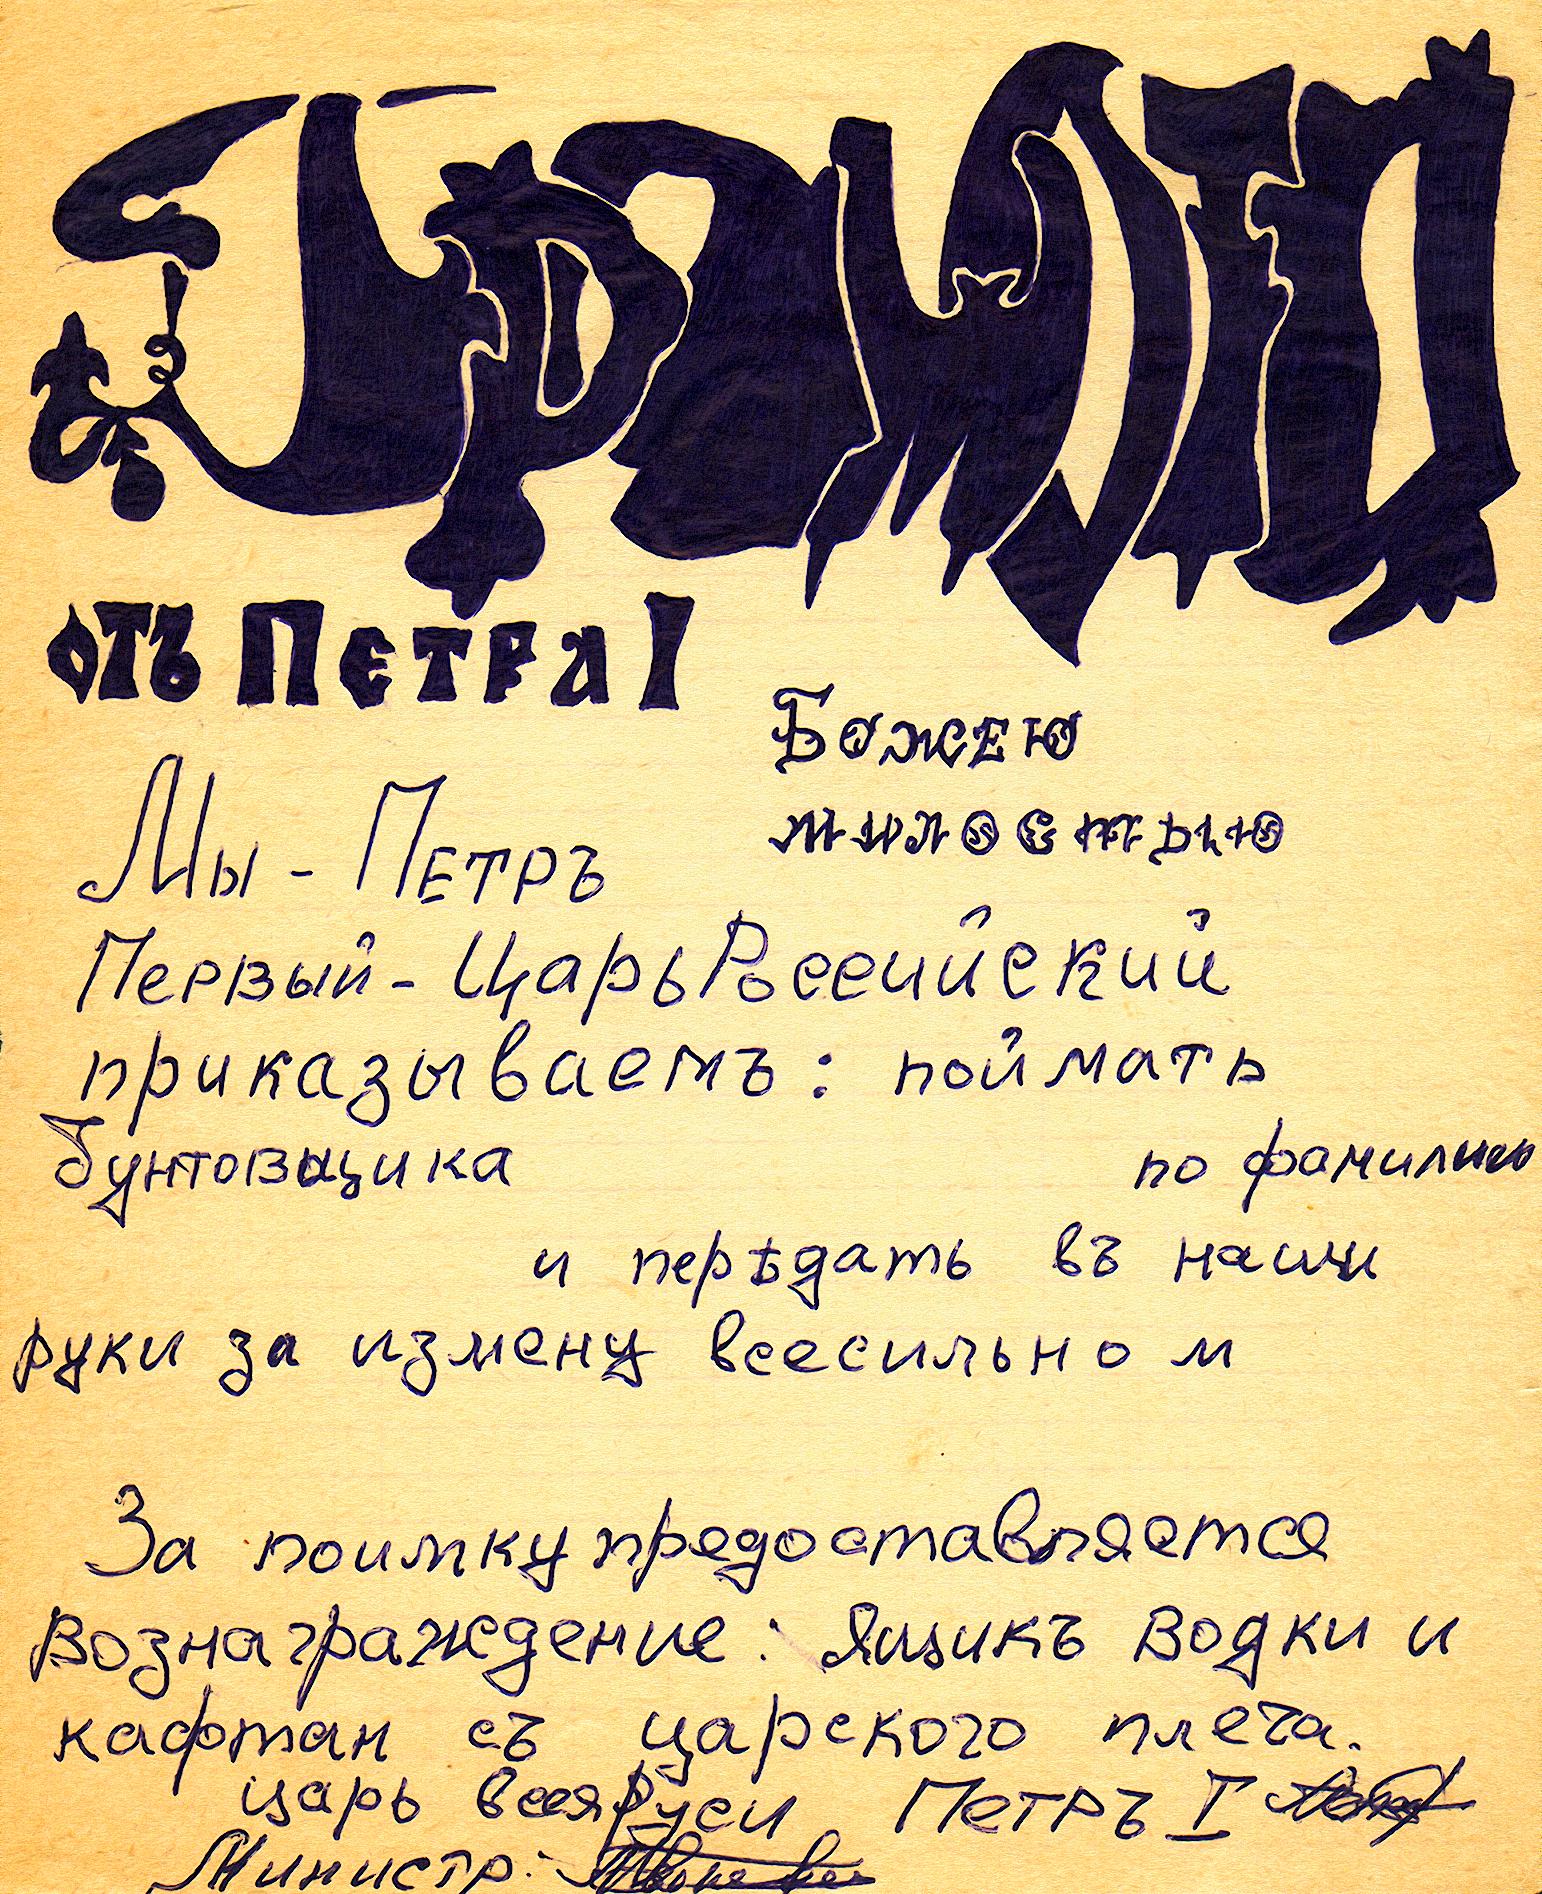 Грамота
отъ Петра I
Божею
милостью
Мы - Петръ
Первый - Царь Россиийский
приказываемъ: поймать
бунтовщика по фамилию
и перѣдать въ наши
руки за измену всесильном
За поимку предоставляется
вознаграждение: Ящикъ водки и
кафтан съ царского плеча.
царь всея Руси Петръ I
Министр: